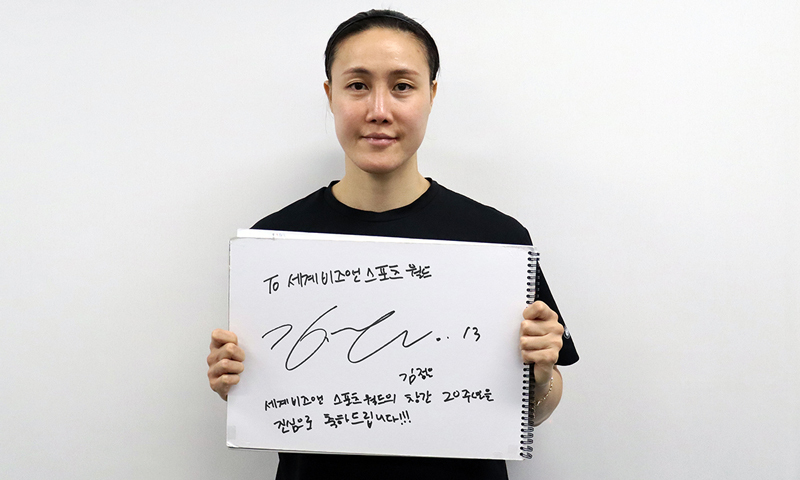 To 세계비즈앤스포츠월드
13
김정은
세계비즈앤 스포츠월드의 창간 20주년을
진심으로 축하드립니다!!!